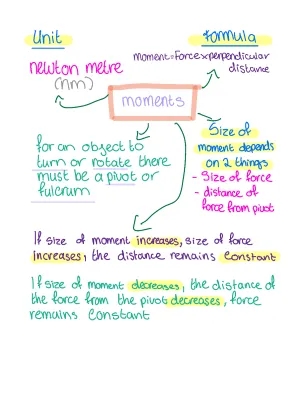 Unit
Formula
moment=Force×perpendicular
distance
newton metre
(nm)
moments
Size of
moment depends
on 2 things
- Size of force
- distance of
force from pivot
for an object to
turn or rotate there
must be a pivot or
fulcrum
If size of moment increases, size of force
increases, the distance remains constant
If size of moment decreases, the distance of
the force from the pivot decreases, force
remains constant